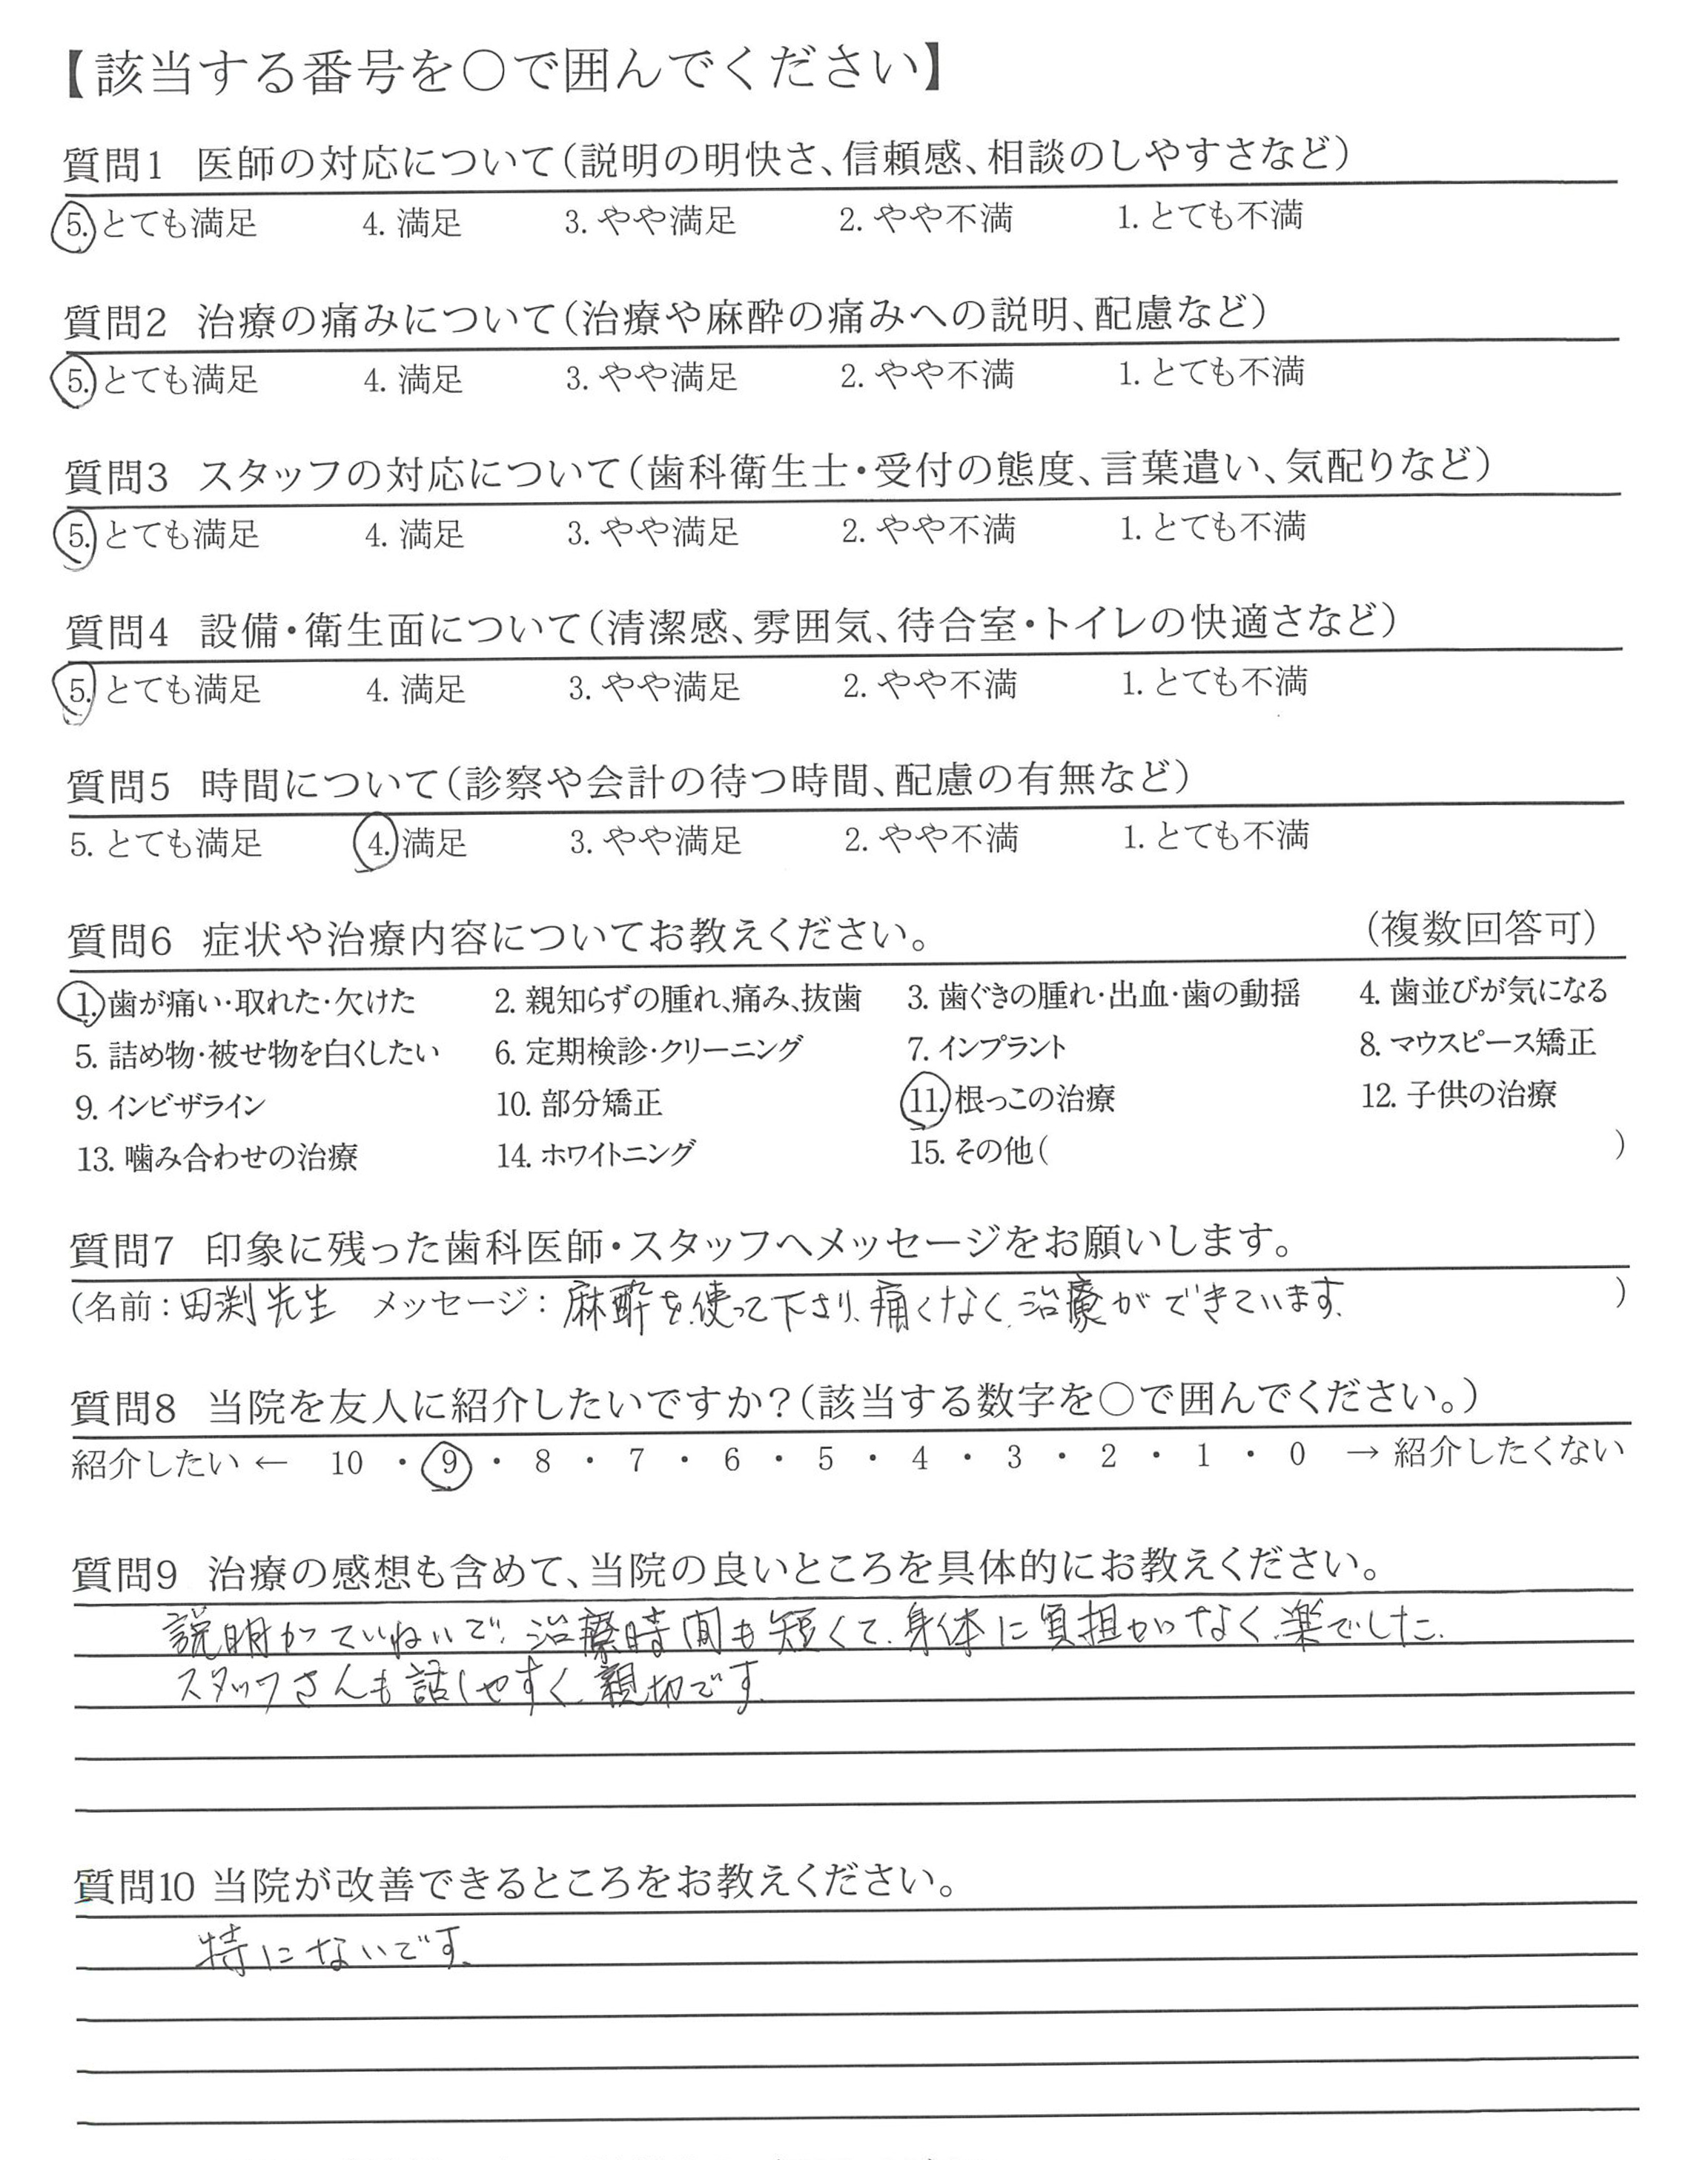 【該当する番号を○で囲んでください】
質問1 医師の対応について(説明の明快さ、信頼感、相談のしやすさなど)
5. とても満足 4. 満足 3. やや満足 2. やや不満 1. とても不満
質問2 治療の痛みについて(治療や麻酔の痛みへの説明、配慮など)
5. とても満足 4. 満足 3. やや満足 2. やや不満 1. とても不満
質問3 スタッフの対応について(歯科衛生士・受付の態度、言葉遣い、気配りなど)
5. とても満足 4. 満足 3. やや満足 2. やや不満 1. とても不満
質問4 設備・衛生面について(清潔感、雰囲気、待合室・トイレの快適さなど)
5. とても満足 4. 満足 3. やや満足 2. やや不満 1. とても不満
質問5 時間について(診察や会計の待つ時間、配慮の有無など)
5. とても満足 4. 満足 3. やや満足 2. やや不満 1. とても不満
質問6 症状や治療内容についてお教えください。 (複数回答可)
1. 歯が痛い・取れた・欠けた 2. 親知らずの腫れ、痛み、抜歯 3. 歯ぐきの腫れ・出血・歯の動揺 4. 歯並びが気になる
5. 詰め物・被せ物を白くしたい 6. 定期検診・クリーニング 7. インプラント 8. マウスピース矯正
9. インビザライン 10. 部分矯正 11. 根っこの治療 12. 子供の治療
13. 噛み合わせの治療 14. ホワイトニング 15. その他( )
質問7 印象に残った歯科医師・スタッフへメッセージをお願いします。
(名前：田渕先生 メッセージ：麻酔を使って下さり、痛くなく、治療ができています。 )
質問8 当院を友人に紹介したいですか？(該当する数字を○で囲んでください。)
紹介したい ← 10 ・ 9 ・ 8 ・ 7 ・ 6 ・ 5 ・ 4 ・ 3 ・ 2 ・ 1 ・ 0 → 紹介したくない
質問9 治療の感想も含めて、当院の良いところを具体的にお教えください。
説明がていねいで、治療時間も短くて、身体に負担がなく、楽でした。
スタッフさんも話しやすく、親切です。
質問10 当院が改善できるところをお教えください。
特にないです。